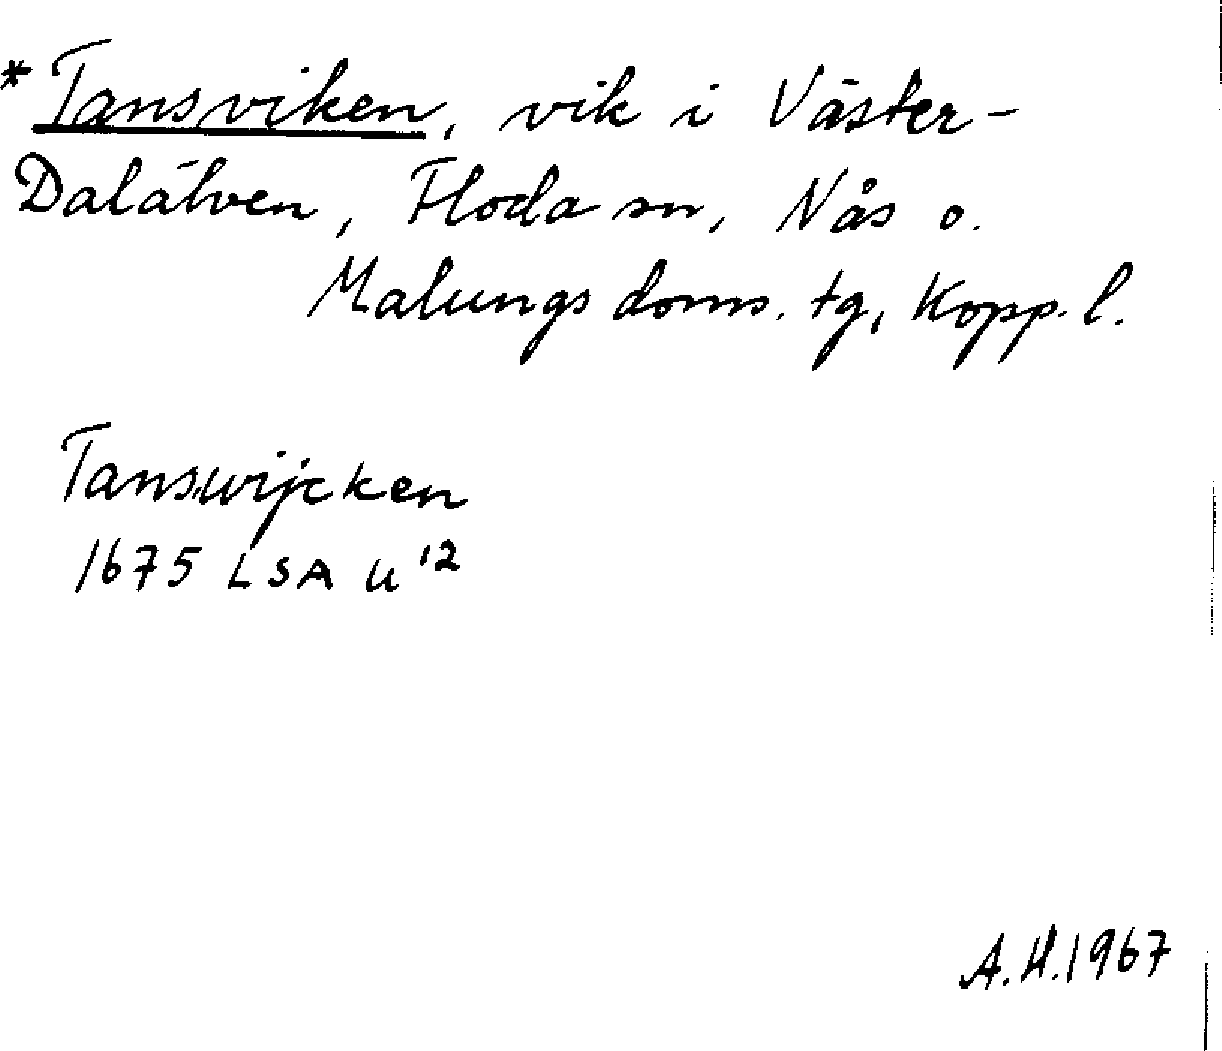 *Tansviken, vik i Väster-
Dalälven, Floda sn, Nås o.
Malungs doms. tg, Kopp. l.
Tanswijcken
1675 LSA U 12
A.H. 1967